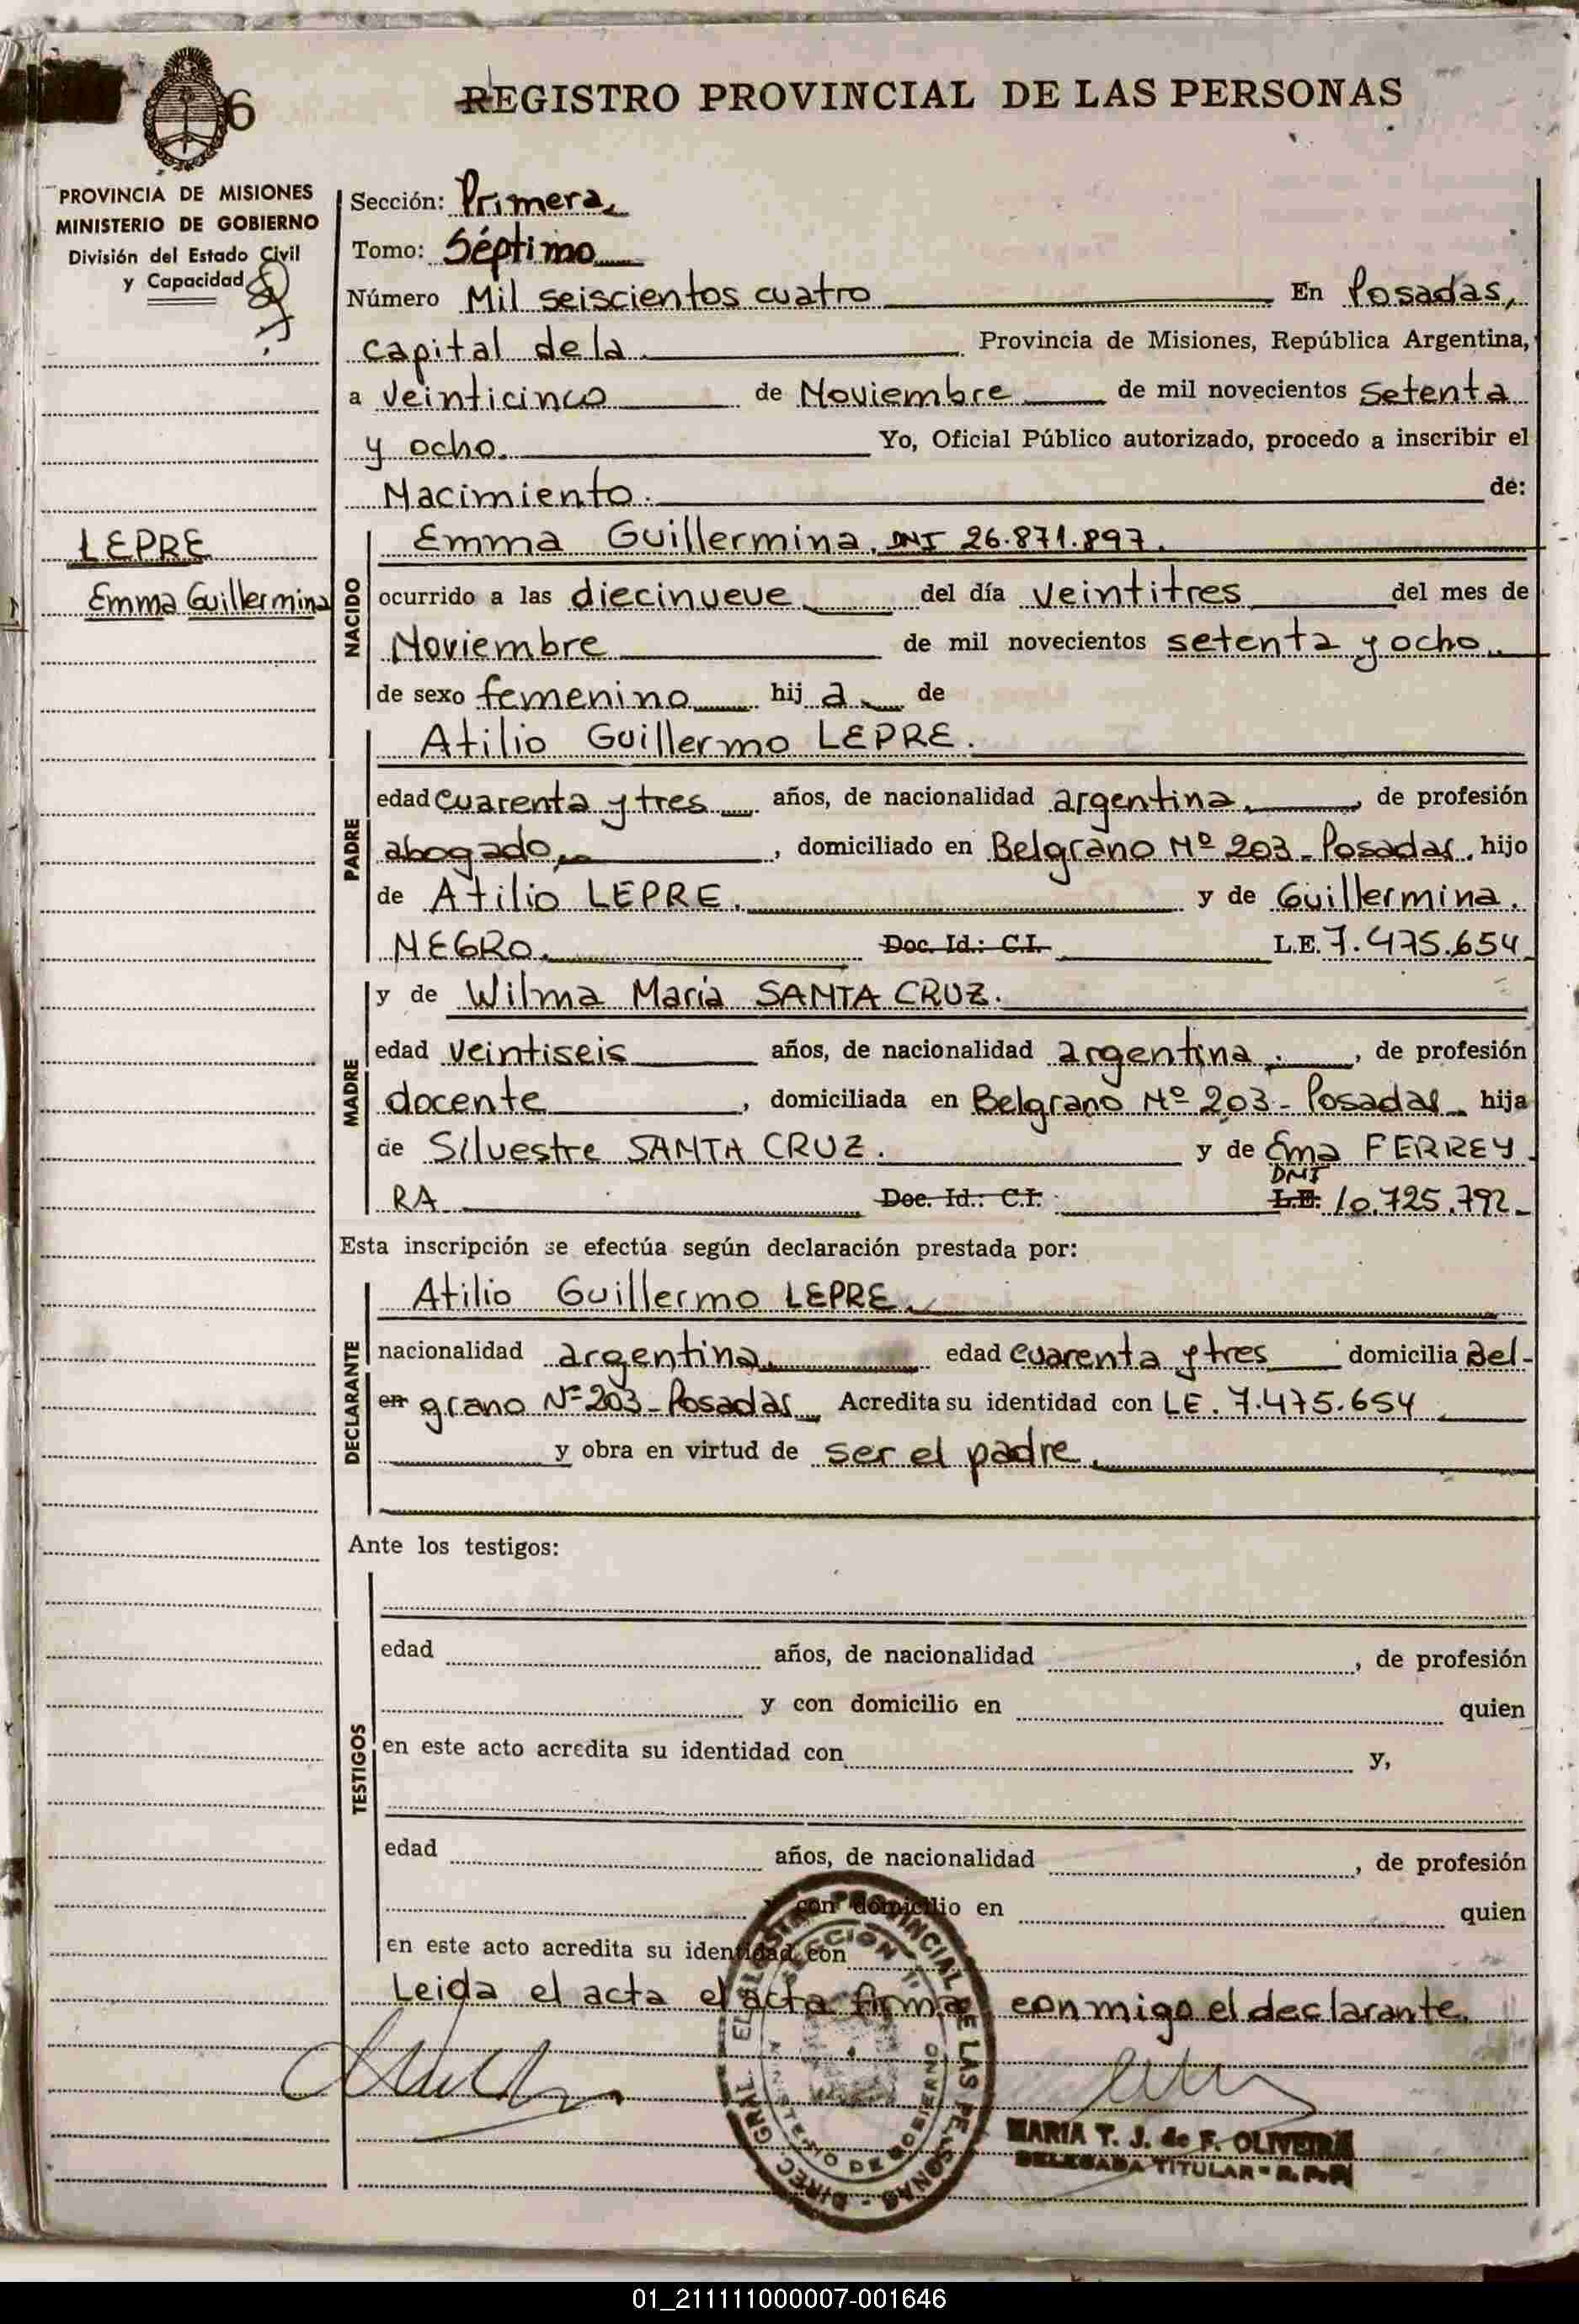 6
REGISTRO PROVINCIAL DE LAS PERSONAS
PROVINCIA DE MISIONES
MINISTERIO DE GOBIERNO
División del Estado Civil
y Capacidad
LEPRE
Emma Guillermina
Sección: Primera
Tomo: Séptimo
Número Mil seiscientos cuatro En Posadas,
capital de la Provincia de Misiones, República Argentina,
a veinticinco de Noviembre de mil novecientos setenta
y ocho. Yo, Oficial Público autorizado, procedo a inscribir el
Nacimiento. de:
NACIDO
Emma Guillermina. DNI 26.871.897.
ocurrido a las diecinueve del día veintitres del mes de
Noviembre de mil novecientos setenta y ocho.
de sexo femenino hij a de
PADRE
Atilio Guillermo LEPRE.
edad cuarenta y tres años, de nacionalidad argentina, de profesión
abogado, domiciliado en Belgrano Nº 203 - Posadas, hijo
de Atilio LEPRE. y de Guillermina.
NEGRO. Doc. Id.: C.I. L.E. 7.475.654
MADRE
y de Wilma María SANTA CRUZ.
edad veintiseis años, de nacionalidad argentina, de profesión
docente, domiciliada en Belgrano Nº 203 - Posadas hija
de Silvestre SANTA CRUZ. y de Ema FERREY
DNI
RA Doc. Id.: C.I. L.E: 10.725.792
Esta inscripción se efectúa según declaración prestada por:
DECLARANTE
Atilio Guillermo LEPRE.
nacionalidad argentina. edad cuarenta y tres domicilia Bel-
en grano Nº 203 - Posadas Acredita su identidad con LE. 7.475.654
y obra en virtud de ser el padre.
Ante los testigos:
TESTIGOS
edad años, de nacionalidad , de profesión
y con domicilio en quien
en este acto acredita su identidad con y,
edad años, de nacionalidad , de profesión
y con domicilio en quien
en este acto acredita su identidad con
Leida el acta el acta firma conmigo el declarante.
DIREC. GRAL. REGISTRO PROVINCIAL DE LAS PERSONAS
SECCION 1ª
MINISTERIO DE GOBIERNO
MARIA T. J. de F. OLIVEIRA
DELEGADA TITULAR - R. P. P.
01_211111000007-001646